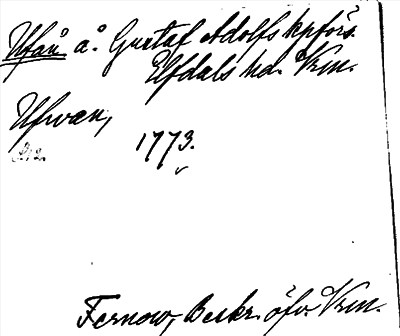 Ufån å. Gustaf Adolfs kpförs.
Elfdals hd. Vrm.
Ufvan,
1773.
Fernow, Beskr. öfv. Vrm.